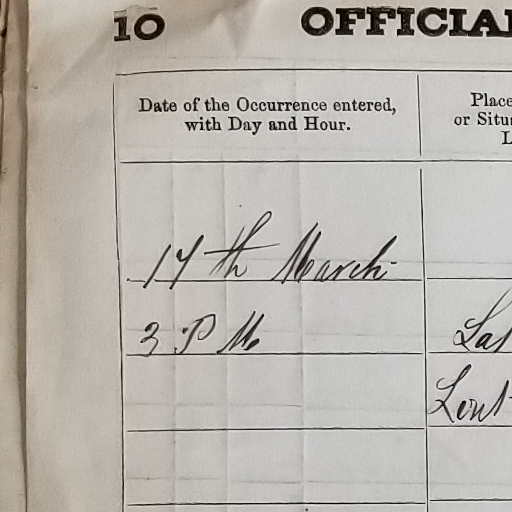 10 OFFICIAL
Date of the Occurrence entered,
with Day and Hour.
Place
or Situ
L
17th March
3 P M
Lat